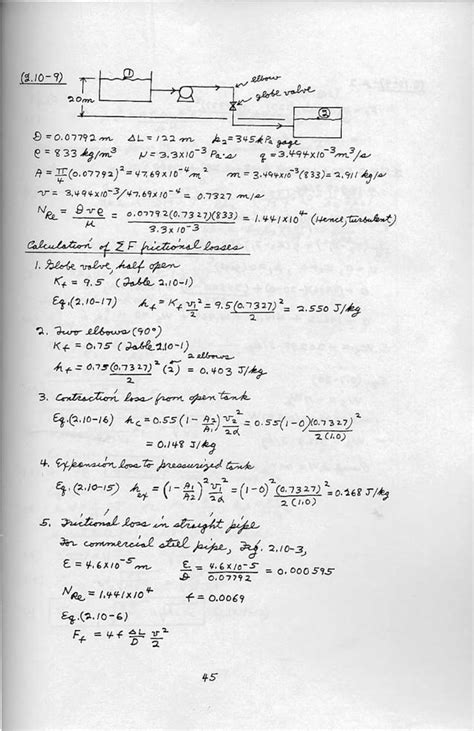 (2.10-9)
①
elbow
globe valve
20m
②
D = 0.07792 m   ΔL = 122 m   p₂ = 345 kPa gage
ρ = 833 kg/m³   μ = 3.3x10⁻³ Pa·s   q = 3.494x10⁻³ m³/s
A = π/4 (0.07792)² = 47.69x10⁻⁴ m²   m = 3.494x10⁻³(833) = 2.911 kg/s
v = 3.494x10⁻³/47.69x10⁻⁴ = 0.7327 m/s
N_Re = Dvρ/μ = 0.07792(0.7327)(833)/3.3x10⁻³ = 1.441x10⁴ (Hence, turbulent)
Calculation of ΣF frictional losses
1. Globe valve, half open
K_f = 9.5 (Table 2.10-1)
Eq.(2.10-17)   h_f = K_f v₁²/2 = 9.5(0.7327)²/2 = 2.550 J/kg
2. Two elbows (90°)
K_f = 0.75 (Table 2.10-1)
2 elbows
h_f = 0.75(0.7327)²/2 (2) = 0.403 J/kg
3. Contraction loss from open tank
Eq.(2.10-16)   h_c = 0.55(1 - A₂/A₁) v₂²/2α = 0.55(1-0)(0.7327)²/2(1.0)
= 0.148 J/kg
4. Expansion loss to pressurized tank
Eq.(2.10-15)   h_ex = (1 - A₁/A₂)² v₁²/2α = (1-0)² (0.7327)²/2(1.0) = 0.268 J/kg
5. Frictional loss in straight pipe
For commercial steel pipe, Fig. 2.10-3,
ε = 4.6x10⁻⁵ m   ε/D = 4.6x10⁻⁵/0.07792 = 0.000595
N_Re = 1.441x10⁴   f = 0.0069
Eq.(2.10-6)
F_f = 4f ΔL/D v²/2
45